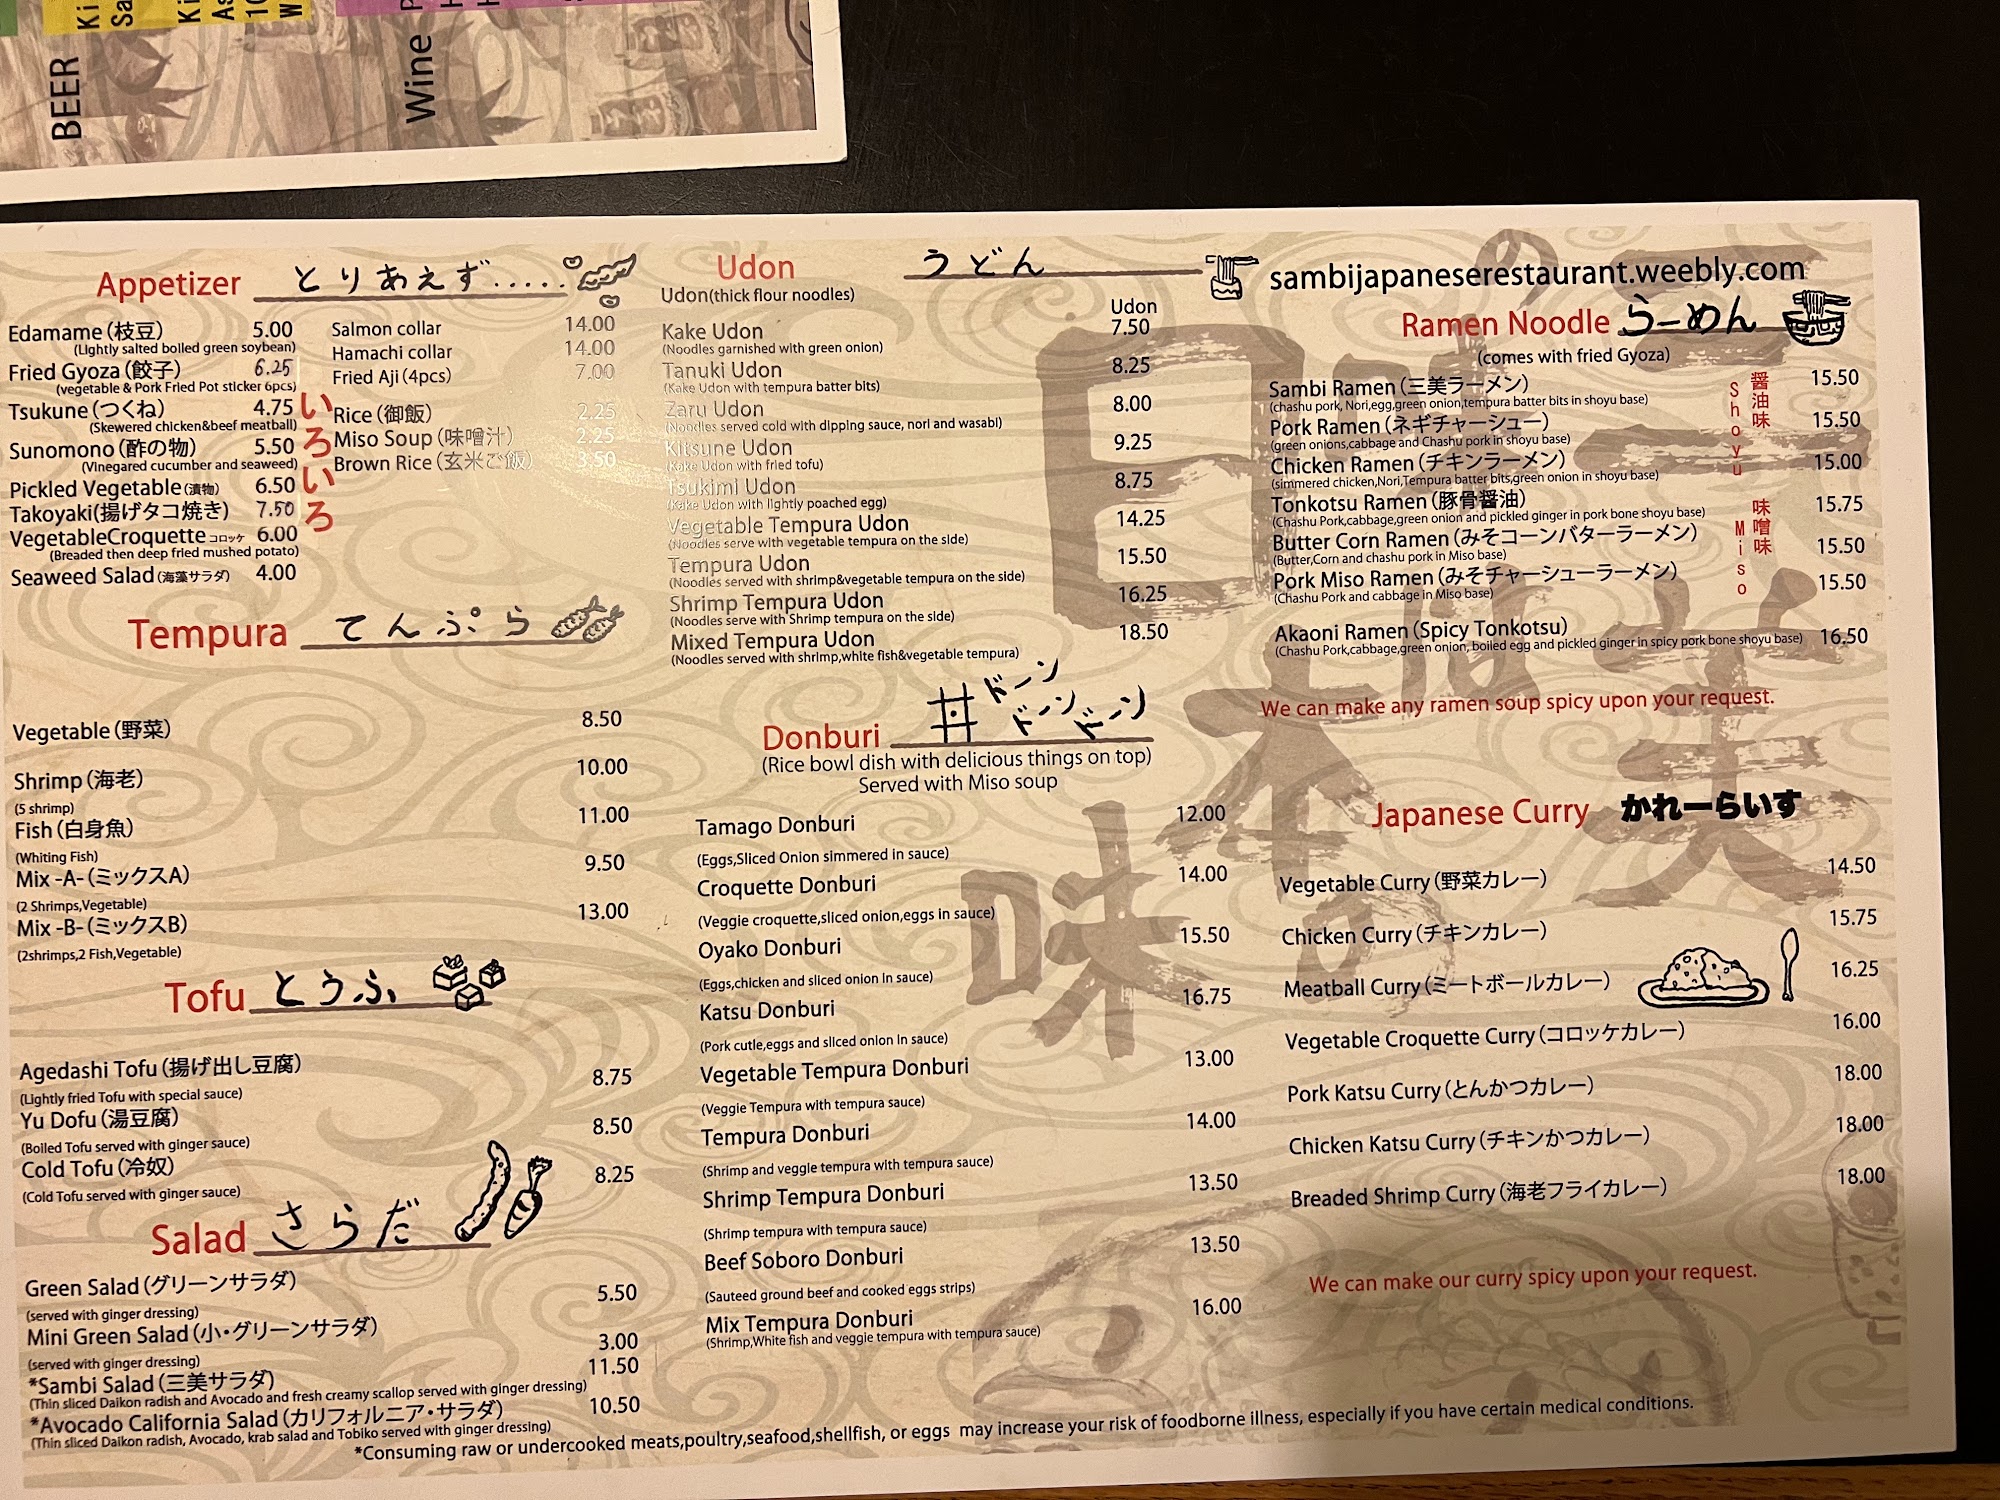 BEER
Wine
Appetizer とりあえず.....
Edamame(枝豆) 5.00
(Lightly salted boiled green soybean)
Fried Gyoza(餃子) 6.25
(vegetable & Pork Fried Pot sticker 6pcs)
Tsukune(つくね) 4.75
(Skewered chicken&beef meatball)
Sunomono(酢の物) 5.50
(Vinegared cucumber and seaweed)
Pickled Vegetable(漬物) 6.50
Takoyaki(揚げタコ焼き) 7.50
VegetableCroquetteコロッケ 6.00
(Breaded then deep fried mushed potato)
Seaweed Salad(海藻サラダ) 4.00
いろいろ
Salmon collar 14.00
Hamachi collar 14.00
Fried Aji(4pcs) 7.00
Rice(御飯) 2.25
Miso Soup(味噌汁) 2.25
Brown Rice(玄米ご飯) 3.50
Tempura てんぷら
Vegetable(野菜) 8.50
Shrimp(海老) 10.00
(5 shrimp)
Fish(白身魚) 11.00
(Whiting Fish)
Mix -A-(ミックスA) 9.50
(2 Shrimps,Vegetable)
Mix -B-(ミックスB) 13.00
(2shrimps,2 Fish,Vegetable)
Tofu とうふ
Agedashi Tofu(揚げ出し豆腐) 8.75
(Lightly fried Tofu with special sauce)
Yu Dofu(湯豆腐) 8.50
(Boiled Tofu served with ginger sauce)
Cold Tofu(冷奴) 8.25
(Cold Tofu served with ginger sauce)
Salad さらだ
Green Salad(グリーンサラダ) 5.50
(served with ginger dressing)
Mini Green Salad(小・グリーンサラダ) 3.00
(served with ginger dressing)
*Sambi Salad(三美サラダ) 11.50
(Thin sliced Daikon radish and Avocado and fresh creamy scallop served with ginger dressing)
*Avocado California Salad(カリフォルニア・サラダ) 10.50
(Thin sliced Daikon radish, Avocado, krab salad and Tobiko served with ginger dressing)
Udon うどん
Udon(thick flour noodles)
Udon
Kake Udon 7.50
(Noodles garnished with green onion)
Tanuki Udon 8.25
(Kake Udon with tempura batter bits)
Zaru Udon 8.00
(Noodles served cold with dipping sauce, nori and wasabi)
Kitsune Udon 9.25
(Kake Udon with fried tofu)
Tsukimi Udon 8.75
(Kake Udon with lightly poached egg)
Vegetable Tempura Udon 14.25
(Noodles serve with vegetable tempura on the side)
Tempura Udon 15.50
(Noodles served with shrimp&vegetable tempura on the side)
Shrimp Tempura Udon 16.25
(Noodles serve with Shrimp tempura on the side)
Mixed Tempura Udon 18.50
(Noodles served with shrimp,white fish&vegetable tempura)
Donburi 丼 ドーン ドーン ドーン
(Rice bowl dish with delicious things on top)
Served with Miso soup
Tamago Donburi 12.00
(Eggs,Sliced Onion simmered in sauce)
Croquette Donburi 14.00
(Veggie croquette,sliced onion,eggs in sauce)
Oyako Donburi 15.50
(Eggs,chicken and sliced onion in sauce)
Katsu Donburi 16.75
(Pork cutle,eggs and sliced onion in sauce)
Vegetable Tempura Donburi 13.00
(Veggie Tempura with tempura sauce)
Tempura Donburi 14.00
(Shrimp and veggie tempura with tempura sauce)
Shrimp Tempura Donburi 13.50
(Shrimp tempura with tempura sauce)
Beef Soboro Donburi 13.50
(Sauteed ground beef and cooked eggs strips)
Mix Tempura Donburi 16.00
(Shrimp,White fish and veggie tempura with tempura sauce)
sambijapaneserestaurant.weebly.com
Ramen Noodle らーめん
(comes with fried Gyoza)
Sambi Ramen(三美ラーメン) 15.50
(chashu pork, Nori,egg,green onion,tempura batter bits in shoyu base)
Pork Ramen(ネギチャーシュー) 15.50
(green onions,cabbage and Chashu pork in shoyu base)
Chicken Ramen(チキンラーメン) 15.00
(simmered chicken,Nori,Tempura batter bits,green onion in shoyu base)
Tonkotsu Ramen(豚骨醤油) 15.75
(Chashu Pork,cabbage,green onion and pickled ginger in pork bone shoyu base)
Butter Corn Ramen(みそコーンバターラーメン) 15.50
(Butter,Corn and chashu pork in Miso base)
Pork Miso Ramen(みそチャーシューラーメン) 15.50
(Chashu Pork and cabbage in Miso base)
Akaoni Ramen(Spicy Tonkotsu) 16.50
(Chashu Pork,cabbage,green onion, boiled egg and pickled ginger in spicy pork bone shoyu base)
Shoyu 醤油味
Miso 味噌味
We can make any ramen soup spicy upon your request.
Japanese Curry かれーらいす
Vegetable Curry(野菜カレー) 14.50
Chicken Curry(チキンカレー) 15.75
Meatball Curry(ミートボールカレー) 16.25
Vegetable Croquette Curry(コロッケカレー) 16.00
Pork Katsu Curry(とんかつカレー) 18.00
Chicken Katsu Curry(チキンかつカレー) 18.00
Breaded Shrimp Curry(海老フライカレー) 18.00
We can make our curry spicy upon your request.
*Consuming raw or undercooked meats,poultry,seafood,shellfish, or eggs may increase your risk of foodborne illness, especially if you have certain medical conditions.